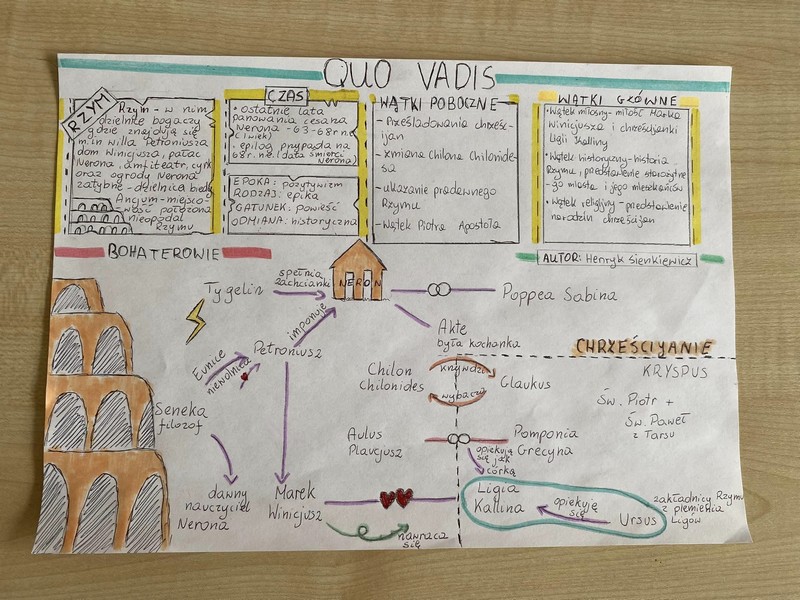 QUO VADIS
RZYM
Rzym - w nim
dzielnice bogaczy
gdzie znajdują się
m.in willa Petroniusza
dom Winicjusza, pałac
Nerona, amfiteatr, cyrk
oraz ogrody Nerona
zatybrze - dzielnica biedy
Ancjum - miejsco
wość położona
nieopodal
Rzymu
CZAS
• ostatnie lata
panowania cesarza
Nerona - 63-68r n.e
(I wiek)
epilog przypada na
68r. n.e. (data śmierci
Nerona)
EPOKA: pozytywizm
RODZAJ: epika
GATUNEK: powieść
ODMIANA: historyczna
WĄTKI POBOCZNE
- Prześladowania chrześc-
ijan
- zmiana Chilona Chilonide-
sa
- ukazanie pradawnego
Rzymu
- Wątek Piotra Apostoła
WĄTKI GŁÓWNE
• Wątek miłosny - miłość Marka
Winicjusza i chrześcijanki
Ligii Kalliny
• Wątek historyczny - historia
Rzymu, przedstawienie starożytne
-go miasta i jego mieszkańców
• Wątek religijny - przedstawienie
narodzin chrześcijan
AUTOR: Henryk Sienkiewicz
BOHATEROWIE
Tygelin
spełnia
zachcianki
NERON
Poppea Sabina
Akte
była kochanka
imponuje
Petroniusz
Eunice
niewolnica
Seneka
filozof
dawny
nauczyciel
Nerona
Marek
Winicjusz
nawraca
się
CHRZEŚCIJANIE
KRYSPUS
Św. Piotr +
Św. Paweł
z Tarsu
Chilon
Chilonides
krzywdzi
wybacza
Glaukus
Aulus
Plaucjusz
Pomponia
Grecyna
opiekują
się jak
córką
Ligia
Kallina
opiekuje
się
Ursus
zakładnicy Rzymu
z plemienia
Ligów